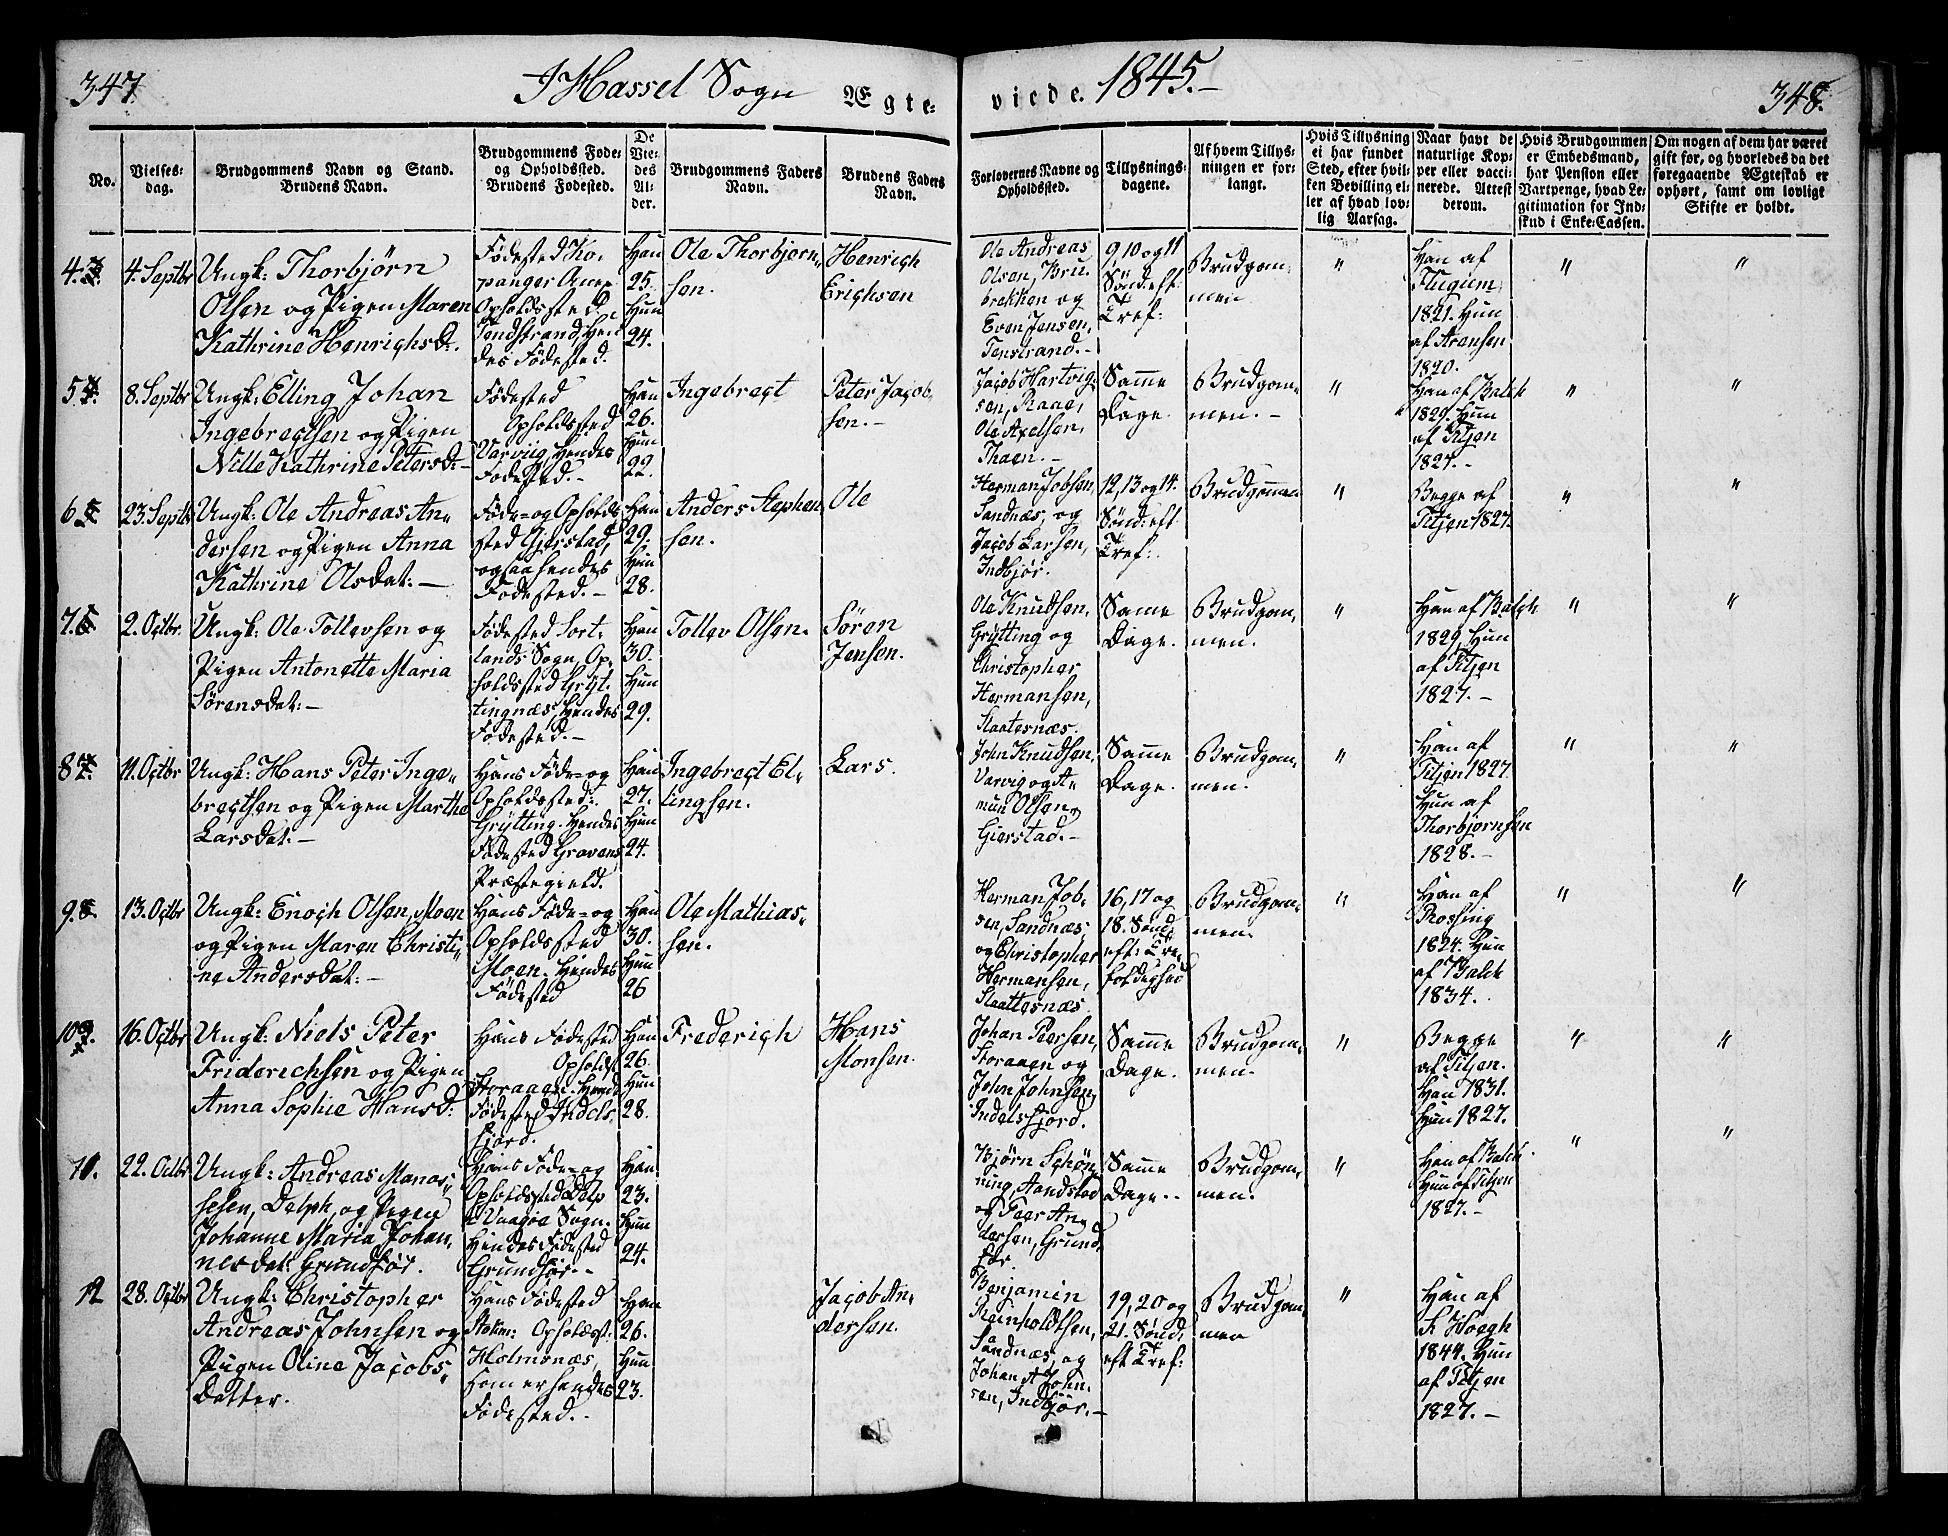 347.
I Hassel Sogn
Ægte-
viede. 1845.-
348.
No.
Vielses-
dag.
Brudgommens Navn og Stand.
Brudens Navn.
Brudgommens Føde-
og Opholdssted.
Brudens Fødested.
De
Vie-
des
Al-
der.
Brudgommens Faders
Navn.
Brudens Faders
Navn.
Forlovernes Navne og
Opholdssted.
Tillysnings-
dagene.
Af hvem Tillys-
ningen er for-
langt.
Hvis Tillysning
ei har fundet
Sted, efter hvil-
ken Bevilling el-
ler af hvad lov-
lig Aarsag.
Naar havt de
naturlige Kop-
per eller vacci-
nerede. Attest
derom.
Hvis Brudgommen
er Embedsmand,
har Pension eller
Vartpenge, hvad Le-
gitimation for Ind-
skud i Enke-Cassen.
Om nogen af dem har været
gift før, og hvorledes da det
foregaaende Ægteskab er
ophørt, samt om lovligt
Skifte er holdt.
4.
4. Septbr
Ungk: Thorbjørn
Olsen og Pigen Maren
Kathrine Henrichsd:.
Fødested Ko-
panger Anex
Opholdssted
Tenstrand, Hen
des Fødested.
Han
25.
Hun
24.
Ole Thorbjørn-
sen.
Henrich
Erichsen
Ole Andreas
Olsen, Bru-
brekken og
Even Jensen,
Tenstrand.-
9, 10 og 11
Sønd: eft:
Tref:
Brudgom-
men.
"
Han af
Flugium
1821. Hun
af Aronsen
1820.
"
"
5.
8. Septbr
Ungk: Elling Johan
Ingebregtsen og Pigen
Nille Kathrine Petersd:-
Fødested
Opholdssted
Varviig, Hendes
Fødested.-
Han
26.
Hun
22.
Ingebregt
Peter Jacob-
sen.-
Jacob Hartvig-
sen, Raae,
Ole Axelsen,
Thaen.-
Samme
Dage.
Brudgom-
men.-
"
Han af Balch
1829. Hun
af Titjen
1827.-
"
"
6.
23. Septbr
Ungk: Ole Andreas An-
dersen og Pigen Anna
Kathrine Olsdat:-
Føde- og Opholds-
sted Gjerstad,
ogsaa hendes
Fødested.-
Han
29.
Hun
28.
Anders Stephen
sen.
Ole
Herman Jobsen,
Sandnæs, og
Jacob Larsen,
Indbjør.
12, 13 og 14.
Sønd: eft:
Tref:
Brudgommen
"
Begge af
Titjen 1827.
"
"
7.
2. Octbr.
Ungk: Ole Tollevsen og
Pigen Antonette Maria
Sørensdat:-
Fødested Sort-
lands Sogn, Op-
holdssted Gryt-
tingnæs, Hendes
Fødested.-
Han
30.
Hun
29.
Tollev Olsen.
Sören
Jensen.
Ole Knudsen,
Grytting og
Christopher
Hermansen,
Slaatesnæs.
Same
Dage.
Brudgom-
men.
"
Han af Balch
1829, Hun
af Titjen
1827.-
"
"
8.
11. Octbr
Ungk: Hans Peter Inge-
bregtsen og Pigen Marthe
Larsdat:-
Hans Føde- og
Opholdssted:
Grytting. Hendes
Fødested Gravens
Præstegield.
Han
27.
Hun
24.
Ingebregt El-
lingsen.
Lars.
John Knudsen,
Varvig og A-
mun Olsen,
Gierstad.-
Samme
Dage.
Brudgom-
men.
"
Han af
Titjen 1827
Hun af
Thorbjørnsen
1828.-
"
"
9.
13. Octbr
Ungk: Enoch Olsen, Moen
og Pigen Maren Christi-
ne Andersdat:-
Hans Føde- og
Opholdssted
Moen. Hendes
Fødested
Han
30.
Hun
26
Ole Mathias-
sen.
Herman Job-
sen, Sandnæs
og Christopher
Hermansen,
Slaattesnæs
16, 17 og
18. Sønd:
eft: Tre-
foldighed
Brudgom-
men.
"
Han af
Rossing
1824. Hun
af Balch
1834.
"
"
10.
16. Octbr
Ungk: Niels Peter
Friderichsen og Pigen
Anna Sophie Hansd:
Hans Fødested
Opholdst
Storaaen. Hends
Fødested Indels-
fjord.
Han
26.
Hun
28.
Frederich
Hans
Monsen.
Johan Peersen,
Storaaen og
John Johnsen,
Indelsfjord.
Samme
Dage.
Brudgom-
men.
"
Begge
af Titjen.
Han 1831.
Hun 1827.
"
"
11.
22. Octbr
Ungk: Andreas Manas-
sesen, Delph, og Pigen
Johanne Maria Johan-
nesdat: Grundfør.
Hans Føde- og
Opholdssted Delp
i Vaagøe Sogn.
Hendes Fødested
Grundfør.-
Han
23.
Hun
24.
Bjørn Schøn-
ning, Aandstad
og Peer An-
dersen, Grund-
før.
Samme
Dage.-
Brudgom-
men.
"
Han af Balch.
Hun af Titjen
1827.-
"
"
12
28. Octbr
Ungk: Christopher
Andreas Johnsen og
Pigen Oline Jacobs-
datter.
Hans Fødested
Stokm: Opholdsst:
Holmsnæs,
som er hendes
Fødested.-
Han
26.
Hun
23.
Jacob An-
dersen.
Benjamin
Reinholdtsen,
Sandnæs, og
Johan A John-
sen, Indbjør.-
19, 20 og
21. Sønd:
eft Tref:
Brudgom-
men
"
Han af
K Hoegh
1844. Hun
af Titjen
1827.-